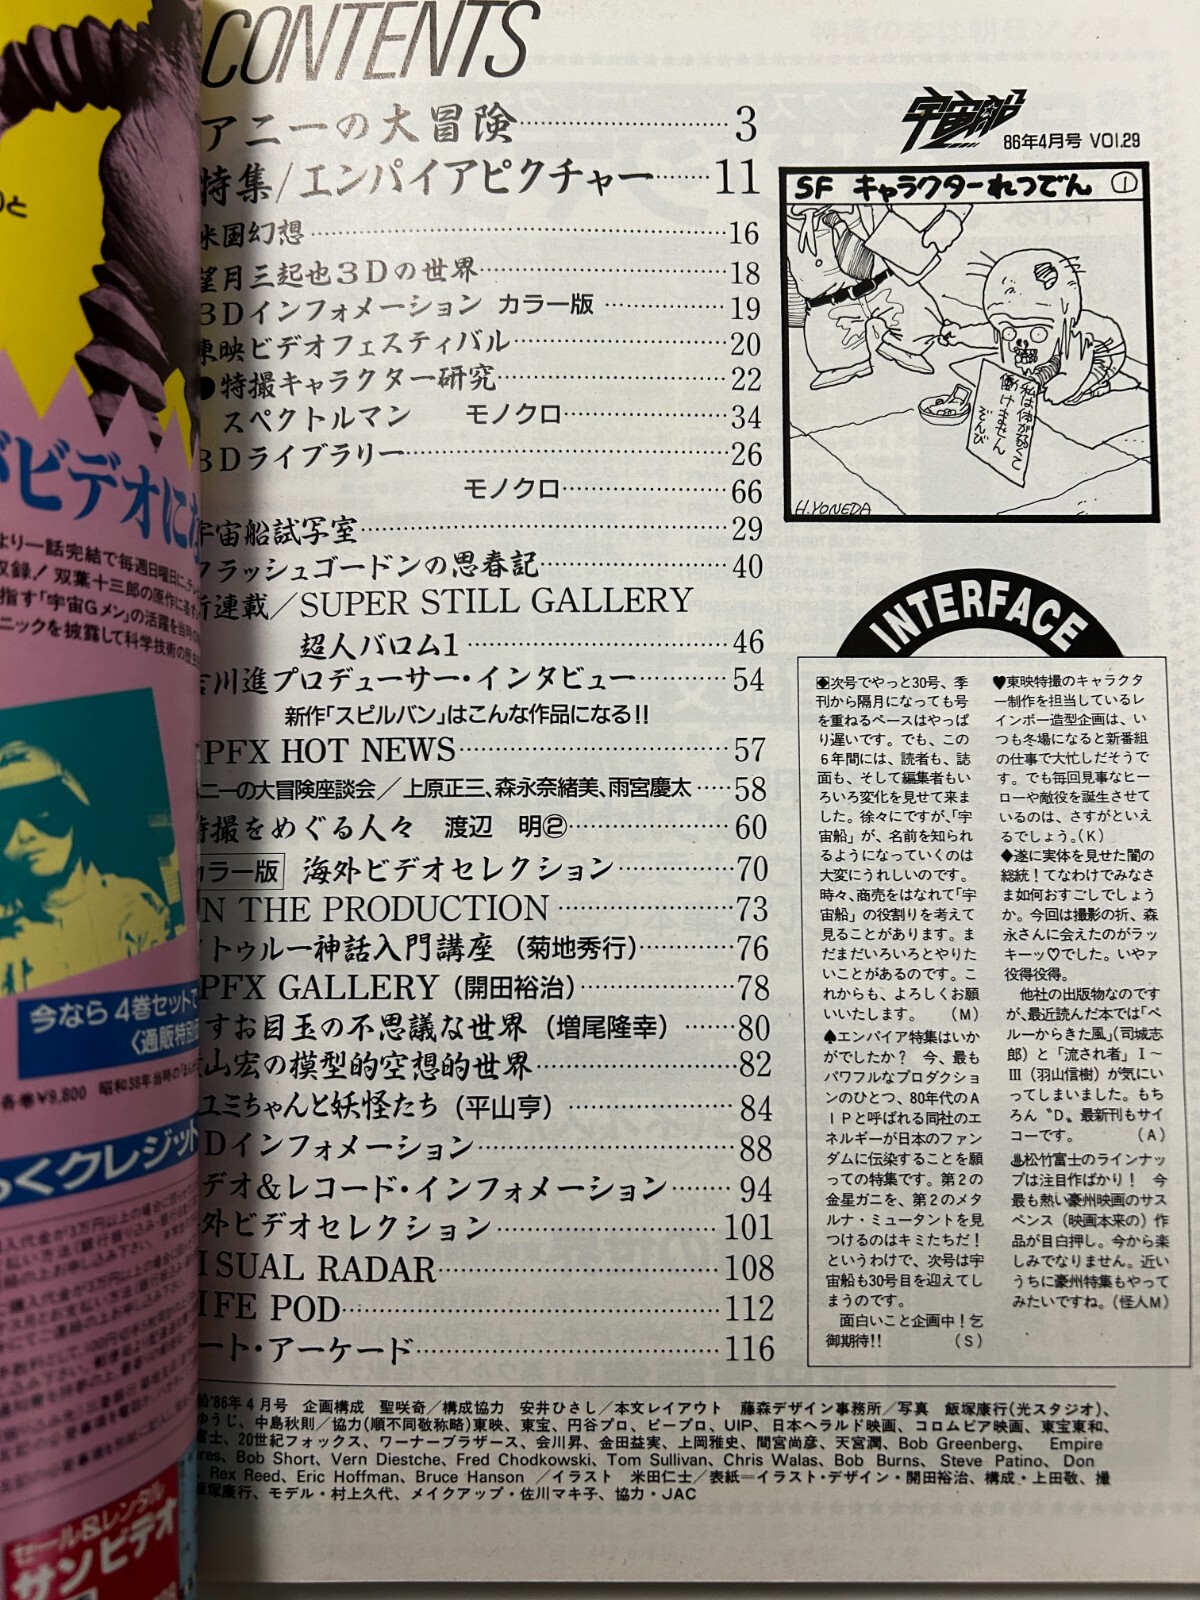 CONTENTS
アニーの大冒険…………3
特集/エンパイアピクチャー……11
米国幻想…………16
望月三起也3Dの世界…………18
3Dインフォメーション カラー版…………19
東映ビデオフェスティバル…………20
●特撮キャラクター研究…………22
スペクトルマン モノクロ…………34
3Dライブラリー…………26
モノクロ…………66
宇宙船試写室…………29
フラッシュゴードンの思春記…………40
新連載／SUPER STILL GALLERY
超人バロム1…………46
吉川進プロデューサー・インタビュー…………54
新作「スピルバン」はこんな作品になる!!
PFX HOT NEWS…………57
ニーの大冒険座談会／上原正三、森永奈緒美、雨宮慶太……58
特撮をめぐる人々 渡辺 明②…………60
カラー版 海外ビデオセレクション…………70
N THE PRODUCTION…………73
トゥルー神話入門講座（菊地秀行）…………76
PFX GALLERY（開田裕治）…………78
すお目玉の不思議な世界（増尾隆幸）……80
山宏の模型的空想的世界…………82
ユミちゃんと妖怪たち（平山亨）…………84
Dインフォメーション…………88
デオ&レコード・インフォメーション…………94
外ビデオセレクション…………101
ISUAL RADAR…………108
IFE POD…………112
ート・アーケード…………116
宇宙船
86年4月号 VOl.29
SF キャラクターれつでん ①
私は体が弱くて
働けません
ぞんび
H.YONEDA
INTERFACE
◆次号でやっと30号、季
刊から隔月になっても号
を重ねるペースはやっぱ
り遅いです。でも、この
6年間には、読者も、誌
面も、そして編集者もい
ろいろ変化を見せて来ま
した。徐々にですが、「宇
宙船」が、名前を知られ
るようになっていくのは
大変にうれしいのです。
時々、商売をはなれて「宇
宙船」の役割りを考えて
見ることがあります。ま
だまだいろいろとやりた
いことがあるのです。こ
れからも、よろしくお願
いいたします。 （M）
♠エンパイア特集はいか
がでしたか？ 今、最も
パワフルなプロダクショ
ンのひとつ、80年代のA
IPと呼ばれる同社のエ
ネルギーが日本のファン
ダムに伝染することを願
っての特集です。第2の
金星ガニを、第2のメタ
ルナ・ミュータントを見
つけるのはキミたちだ！
というわけで、次号は宇
宙船も30号目を迎えてし
まうのです。
面白いこと企画中！乞
御期待!! （S）
♥東映特撮のキャラクタ
ー制作を担当しているレ
インボー造型企画は、い
つも冬場になると新番組
の仕事で大忙しだそうで
す。でも毎回見事なヒー
ローや敵役を誕生させて
いるのは、さすがといえ
るでしょう。（K）
◆遂に実体を見せた闇の
総統！てなわけでみなさ
ま如何おすごしでしょう
か。今回は撮影の折、森
永さんに会えたのがラッ
キーッ♡でした。いやァ
役得役得。
他社の出版物なのです
が、最近読んだ本では「ペ
ルーからきた風」（司城志
郎）と「流され者」Ⅰ～
Ⅲ（羽山信樹）が気にい
ってしまいました。もち
ろん〝D〟最新刊もサイ
コーです。 （A）
♨松竹富士のラインナッ
プは注目作ばかり！ 今
最も熱い豪州映画のサス
ペンス（映画本来の）作
品が目白押し。今から楽
しみでなりません。近い
うちに豪州特集もやって
みたいですね。（怪人M）
船'86年4月号 企画構成 聖咲奇／構成協力 安井ひさし／本文レイアウト 藤森デザイン事務所／写真 飯塚康行(光スタジオ)、
ゆうじ、中島秋則／協力(順不同敬称略)東映、東宝、円谷プロ、ピープロ、UIP、日本ヘラルド映画、コロムビア映画、東宝東和、
富士、20世紀フォックス、ワーナーブラザース、会川昇、金田益実、上岡雅史、間宮尚彦、天宮潤、Bob Greenberg、 Empire
res、Bob Short、Vern Diestche、Fred Chodkowski、Tom Sullivan、Chris Walas、Bob Burns、Steve Patino、Don
、Rex Reed、Eric Hoffman、Bruce Hanson ／イラスト 米田仁士／表紙＝イラスト・デザイン・開田裕治、構成・上田敬、撮
飯塚康行、モデル・村上久代、メイクアップ・佐川マキ子、協力・JAC
と
がビデオに
より一話完結で毎週日曜日に、テレ
収録！双葉十三郎の原作に
指す「宇宙Gメン」の活躍を当時の
ニックを披露して科学技術の
今なら4巻セットで
〈通販特別
各巻￥9,800 昭和38年当時の
らくクレジット
セール&レンタル
サンビデオ